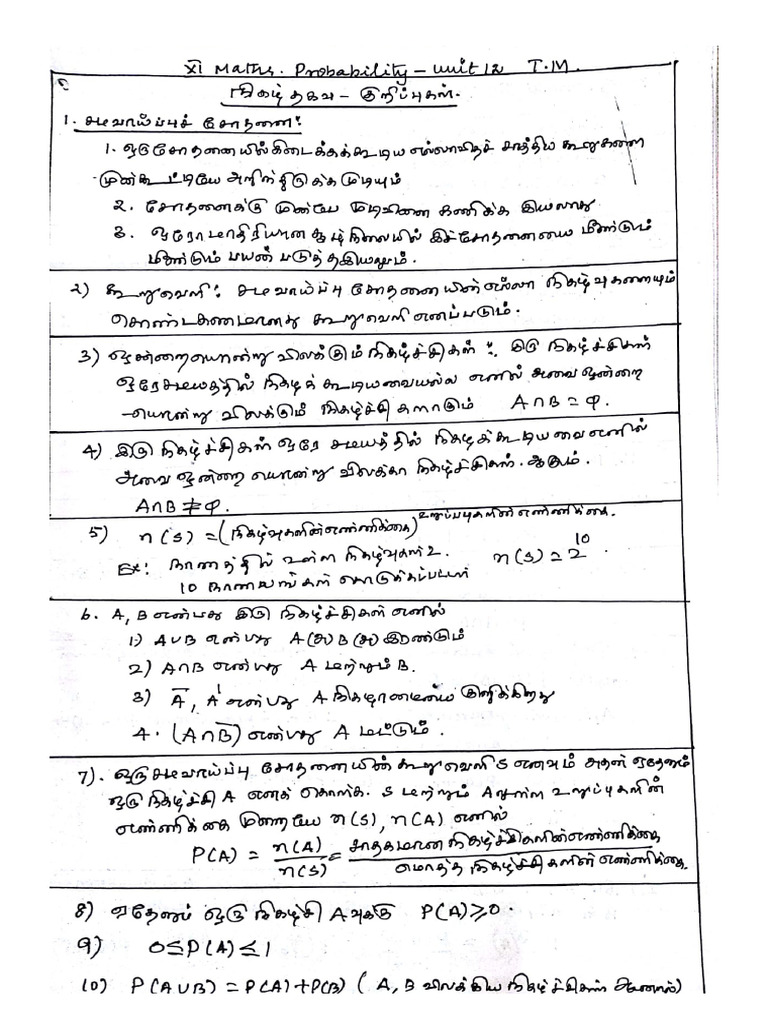 XI Maths. Probability - Unit 12 T.M.
நிகழ்தகவு - குறிப்புகள்.
1. சமவாய்ப்புச் சோதனை:
1. ஒரு சோதனையில் கிடைக்கக்கூடிய எல்லாவிதச் சாத்திய கூறுகளை
முன்கூட்டியே அறிந்திருக்க முடியும்
2. சோதனைக்கு முன்பே முடிவினை கணிக்க இயலாது
3. ஒரே மாதிரியான சூழ்நிலையில் இச்சோதனையை மீண்டும்
மீண்டும் பயன்படுத்த இயலும்.
2) கூறுவெளி: சமவாய்ப்பு சோதனையின் எல்லா நிகழ்வுகளையும்
கொண்ட கணமானது கூறுவெளி எனப்படும்.
3) ஒன்றையொன்று விலக்கும் நிகழ்ச்சிகள்:. இரு நிகழ்ச்சிகள்
ஒரே சமயத்தில் நிகழக் கூடியவையல்ல எனில் அவை ஒன்றை
-யொன்று விலக்கும் நிகழ்ச்சிகளாகும் A∩B = φ.
4) இரு நிகழ்ச்சிகள் ஒரே சமயத்தில் நிகழக்கூடியவை எனில்
அவை ஒன்றையொன்று விலக்கா நிகழ்ச்சிகள். ஆகும்.
A∩B ≠ φ.
5) n(S) = (நிகழ்வுகளின் எண்ணிக்கை)^உறுப்புகளின் எண்ணிக்கை.
Ex: நாணயத்தில் உள்ள நிகழ்வுகள் 2. n(S) = 2^10.
10 நாணயங்கள் கொடுக்கப்பட்டால்
6. A, B என்பது இரு நிகழ்ச்சிகள் எனில்
1) A∪B என்பது A (அ) B (அ) இரண்டும்
2) A∩B என்பது A மற்றும் B.
3) A̅, A' என்பது A நிகழாமையை குறிக்கிறது
4. (A∩B̅) என்பது A மட்டும்.
7). ஒரு சமவாய்ப்பு சோதனையின் கூறுவெளி S எனவும் அதன் ஏதேனும்
ஒரு நிகழ்ச்சி A எனக் கொள்க. S மற்றும் A யுள்ள உறுப்புகளின்
எண்ணிக்கை முறையே n(S), n(A) எனில்
P(A) = n(A)/n(S) = சாதகமான நிகழ்ச்சிகளின் எண்ணிக்கை / மொத்த நிகழ்ச்சிகளின் எண்ணிக்கை.
8) ஏதேனும் ஒரு நிகழ்ச்சி A வுக்கு P(A) ≥ 0.
9) 0 ≤ P(A) ≤ 1
10) P(A∪B) = P(A) + P(B) (A, B விலக்கிய நிகழ்ச்சிகள் ஆனால்)